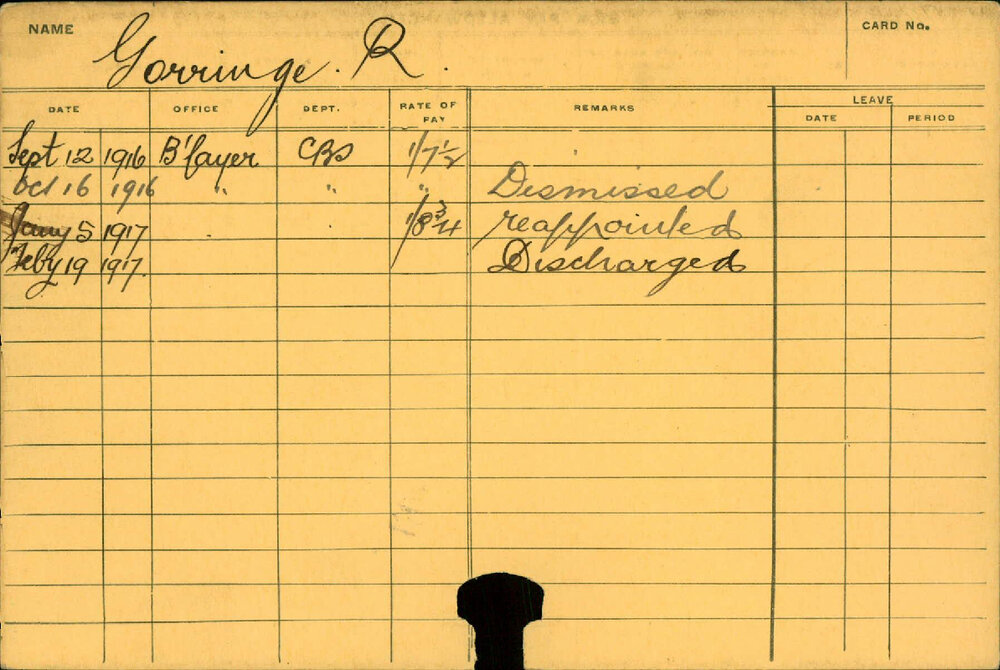 NAME
Gorringe. R.
CARD No.
DATE OFFICE DEPT. RATE OF PAY REMARKS LEAVE
DATE PERIOD
Sept 12 1916 B'layer CBS 1/7½
Oct 16 1916 " " " Dismissed
Jany 5 1917 1/8¾ reappointed
Feby 19 1917. Discharged